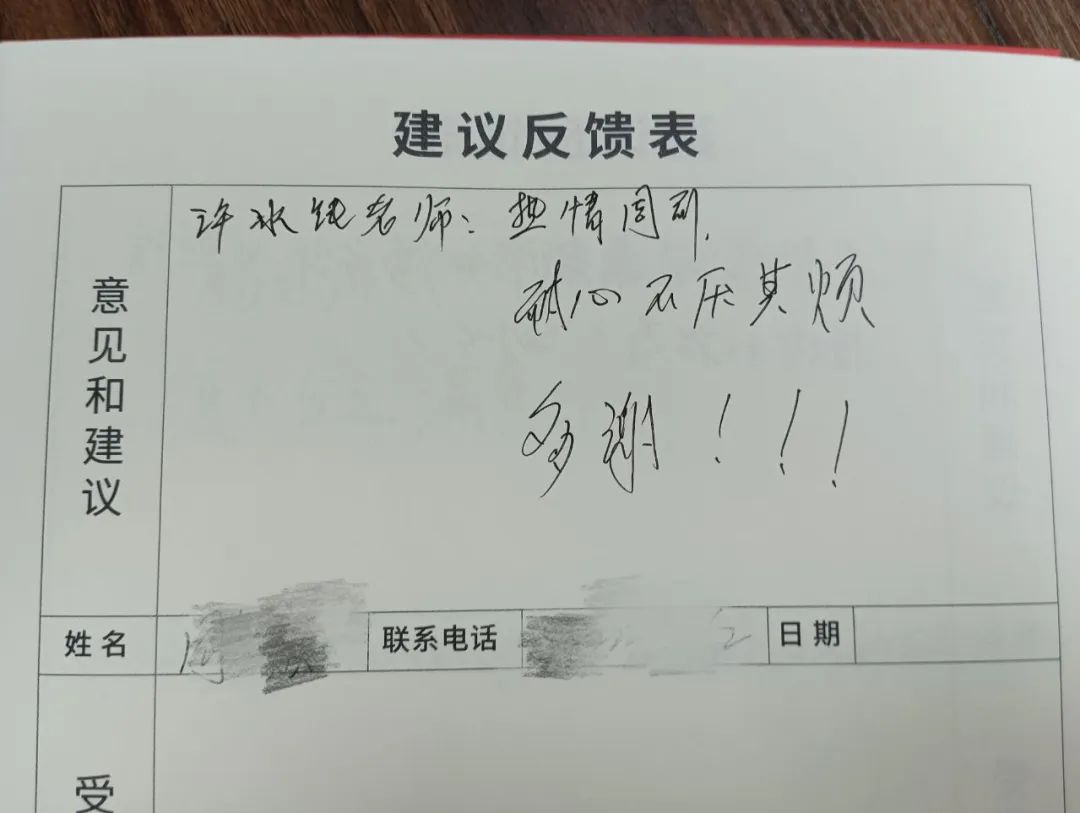 建议反馈表
意见和建议
许冰钱老师：热情周到，
耐心不厌其烦
多谢！！！
姓名
联系电话
日期
受